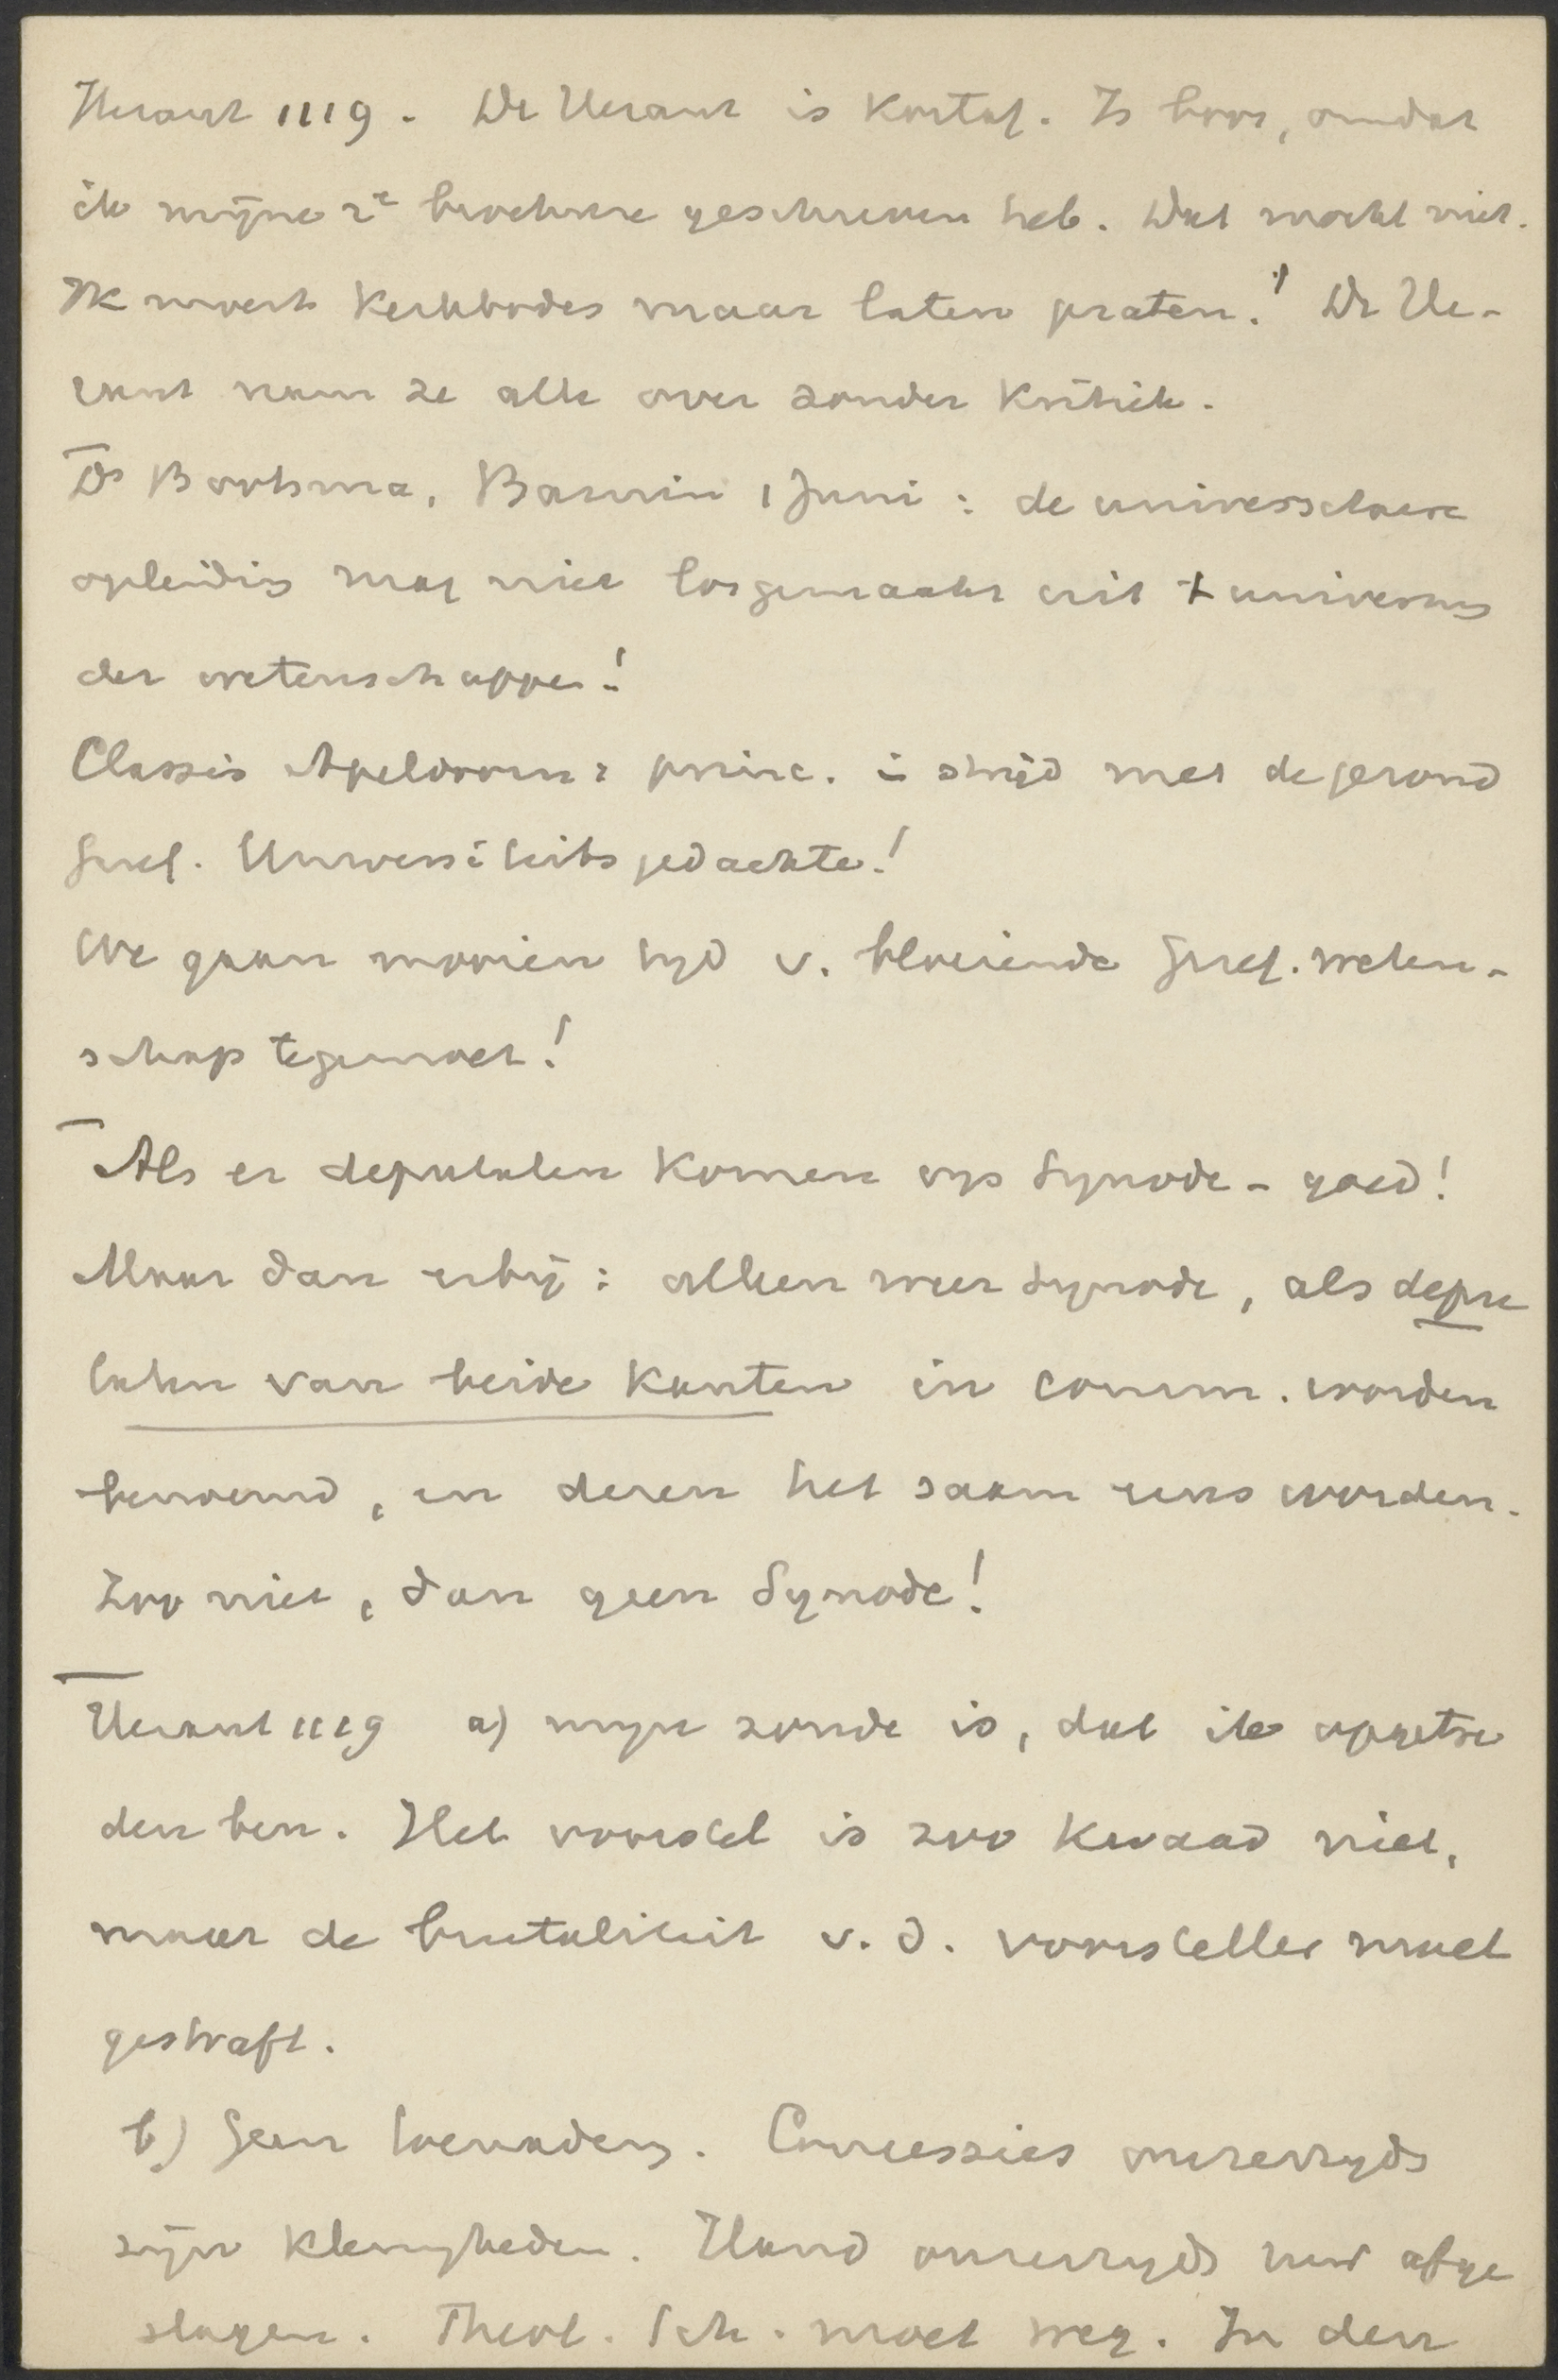 Heraut 1119. De Heraut is kortaf. Is boos, omdat
ik mijne 2e brochure geschreven heb. Dat mocht niet.
Ik moest Kerkbodes maar laten praten! De He-
raut nam ze alle over zonder Kritiek.
Ds Bootsma, Bazuin 1 Juni: de universitaire
opleiding mag niet losgemaakt uit + universum
der wetenschappen!
Classis Apeldoorn: princ. in strijd met de gezond
Geref. Universiteits gedachte!
We gaan mooien tyd v. bloeiende Geref. weten-
schap tegemoet!
Als er deputaten komen op Synode - goed!
Maar dan erbij: alleen weer Synode, als depu
taten van beide kanten in comm. worden
benoemd, en dezen het saam eens worden.
Zoo niet, dan geen Synode!
Heraut 1119 a) mijn zonde is, dat ik opgetre
den ben. Het voorstel is zoo kwaad niet,
maar de brutaliteit v. d. voorsteller moet
gestraft.
b) Geen toenadering. Concessies onzerzyds
zijn kleinigheden. Hand onzerzyds werd afge
slagen. Theol. Sch. moet weg. In den